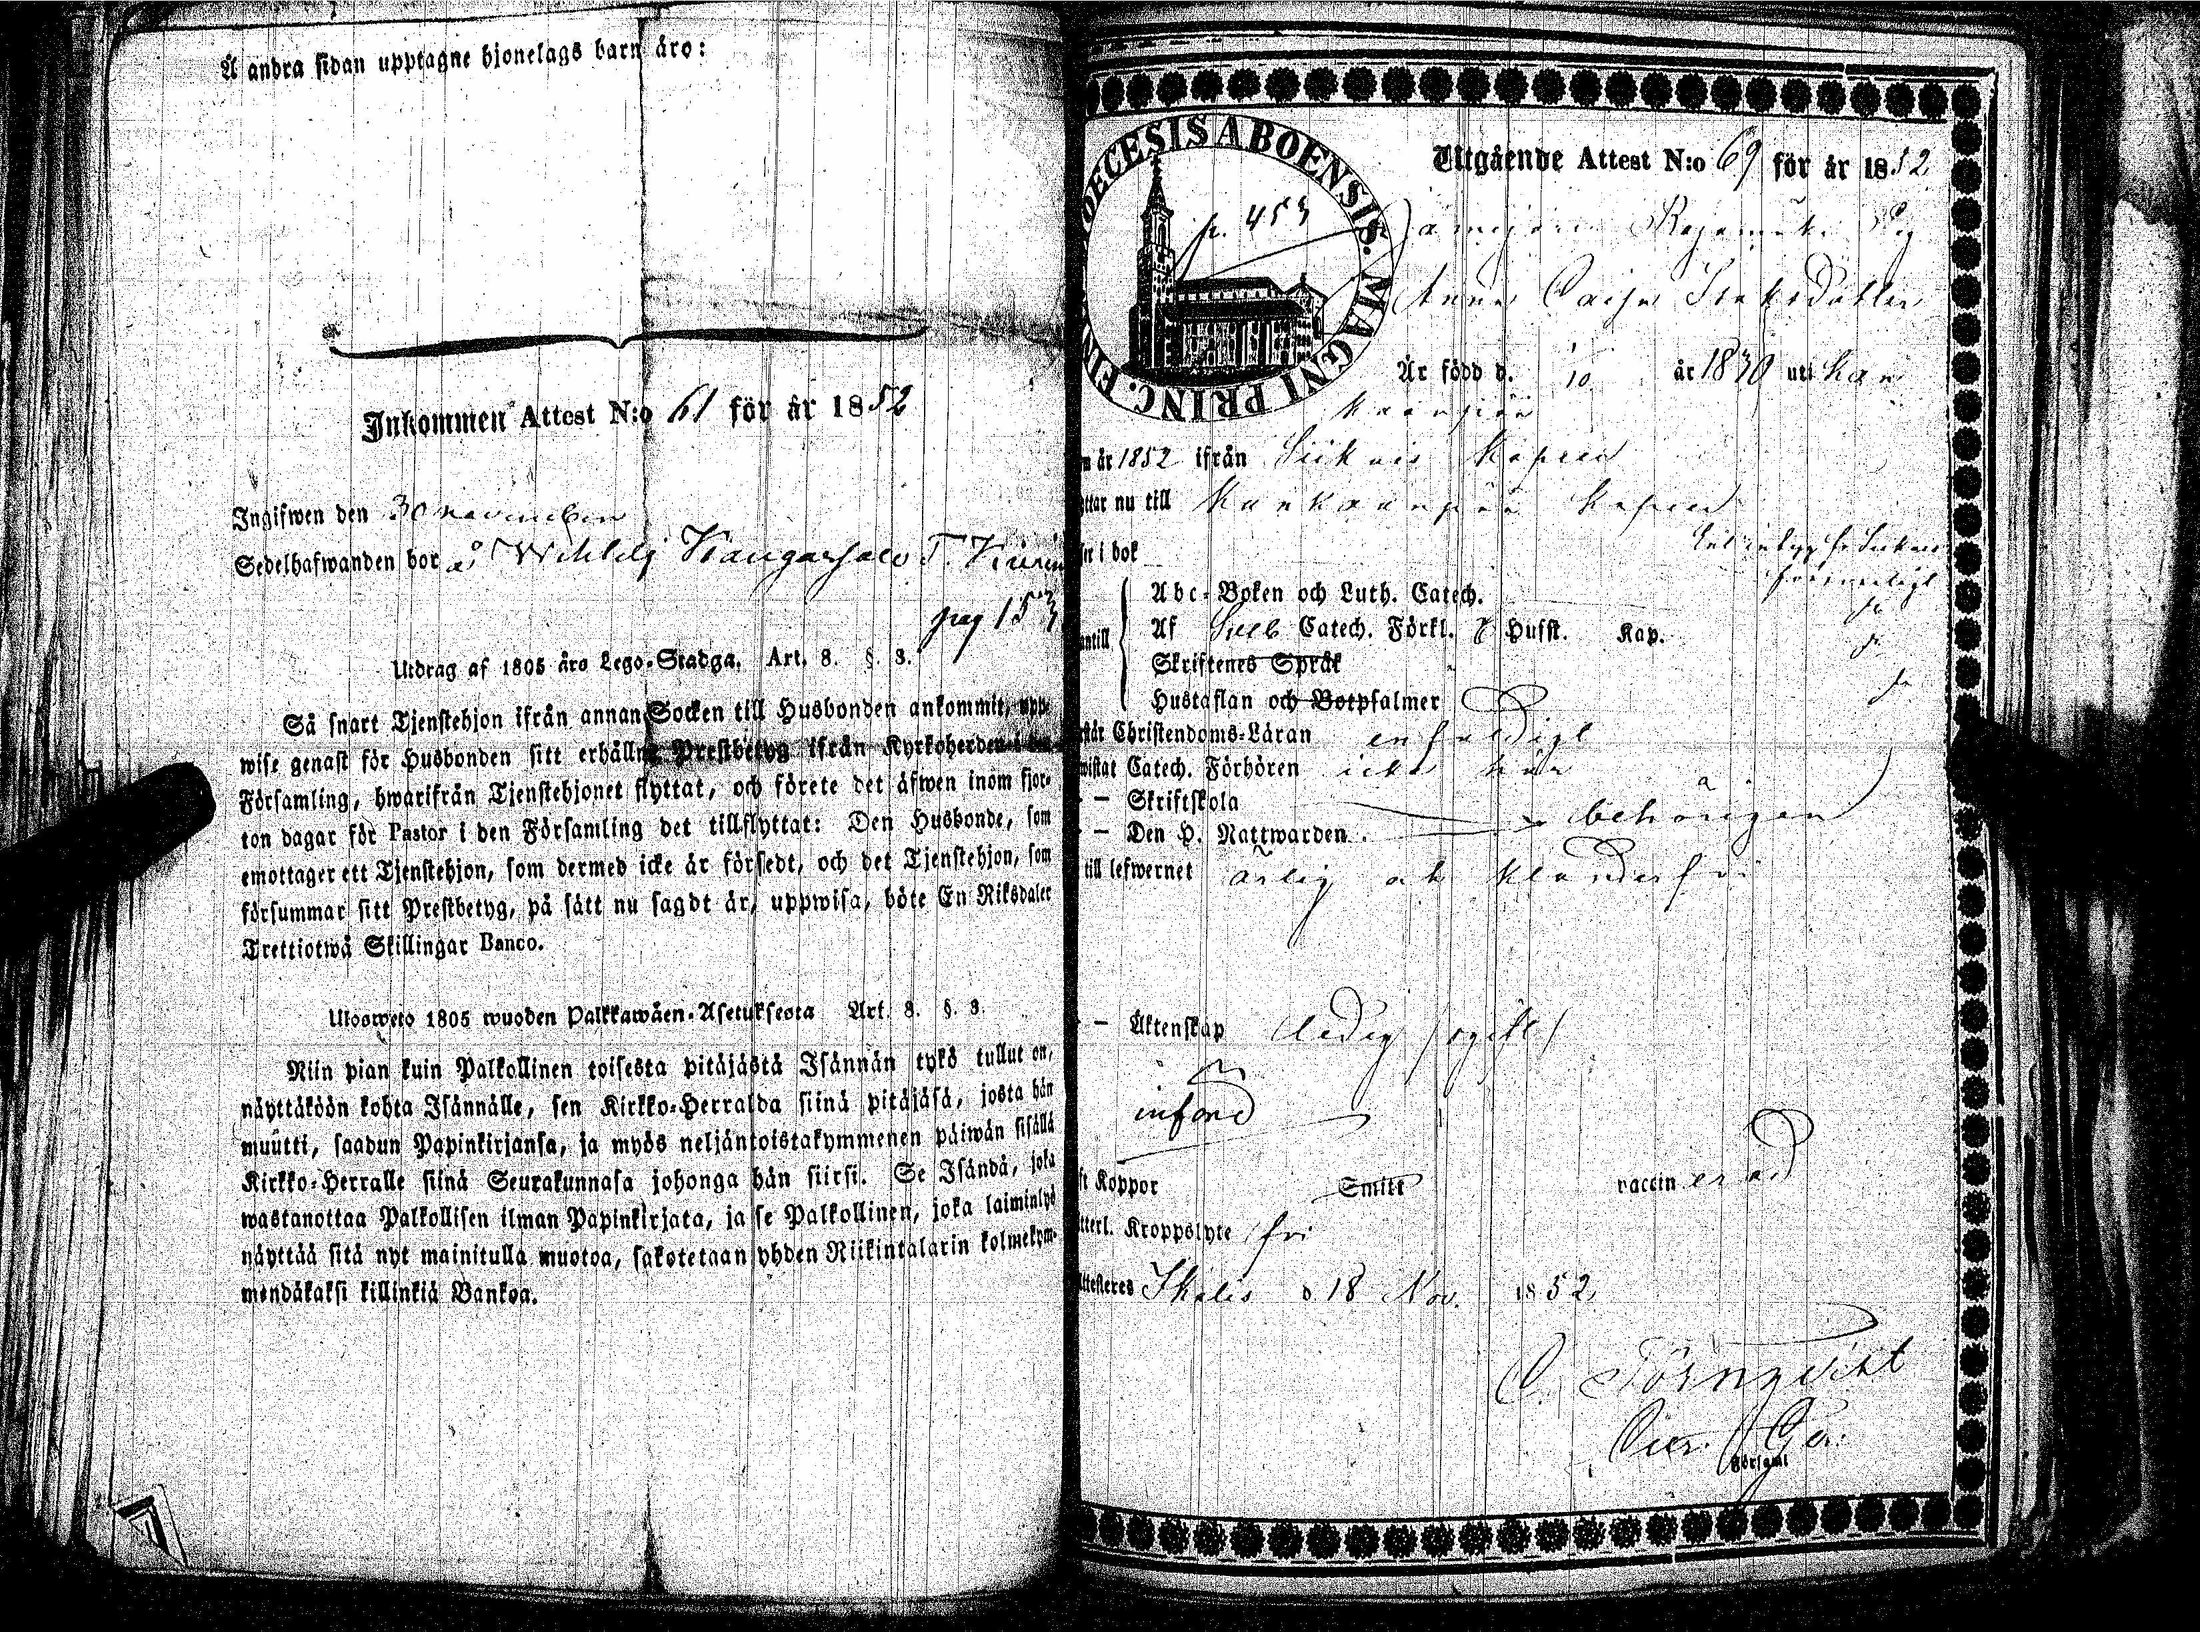 Å andra sidan upptagne hjonelags barn äro:
Inkommen Attest N:o 61 för år 1852
Ingifwen den 30 november
Sedelhafwanden bor å
pag 153
Utdrag af 1805 års Lego-Stadga. Art. 8. §. 3.
Så snart Tjenstehjon ifrån annan Socken till Husbonden ankommit, upp-
wise genast för Husbonden sitt erhållna Prestbetyg ifrån Kyrkoherden i den
Församling, hwarifrån Tjenstehjonet flyttat, och förete det äfwen inom fjor-
ton dagar för Pastor i den Församling det tillflyttat: Den Husbonde, som
emottager ett Tjenstehjon, som dermed icke är försedt, och det Tjenstehjon, som
försummar sitt Prestbetyg, på sätt nu sagdt är, uppwisa, böte En Riksdaler
Trettiotwå Skillingar Banco.
Ulosweto 1805 wuoden Palkkawäen-Asetuksesta Art. 8. §. 3.
Niin pian kuin Palkollinen toisesta pitäjästä Isännän tykö tullut on,
näyttäköön kohta Isännälle, sen Kirkko-Herralda siinä pitäjäsä, josta hän
muutti, saadun Papinkirjansa, ja myös neljäntoistakymmenen päiwän sisällä
Kirkko-Herralle siinä Seurakunnasa johonga hän siirsi. Se Isändä, joka
wastanottaa Palkollisen ilman Papinkirjata, ja se Palkollinen, joka laiminlyö
näyttää sitä nyt mainitulla muotoa, sakotetaan yhden Riikintalarin kolmekym-
mendäkaksi killinkiä Bankoa.
DIOECESIS ABOENSIS. MAGNI PRINC. FIN
p. 453
Utgående Attest N:o 69 för år 1852
Anna Caisa
Är född d. 10 år 1830 uti
år 1852 ifrån kapell
nu till kapell
i bok
Abc-Boken och Luth. Catech.
Af Sveb Catech. Förkl. Hufst. Kap.
Skriftenes Språk
Hustaflan och Botpsalmer
Christendoms-Läran enfaldigt
Catech. Förhören icke här
— Skriftskola
— Den H. Nattwarden behörigen
till lefwernet ärlig och klanderfri
— Äktenskap ledig (ogift)
införd
Koppor Smitt vaccinerad
Kroppslyte fri
Attesteras Ikalis d 18 Nov. 1852
C. Törnqvist
Församl